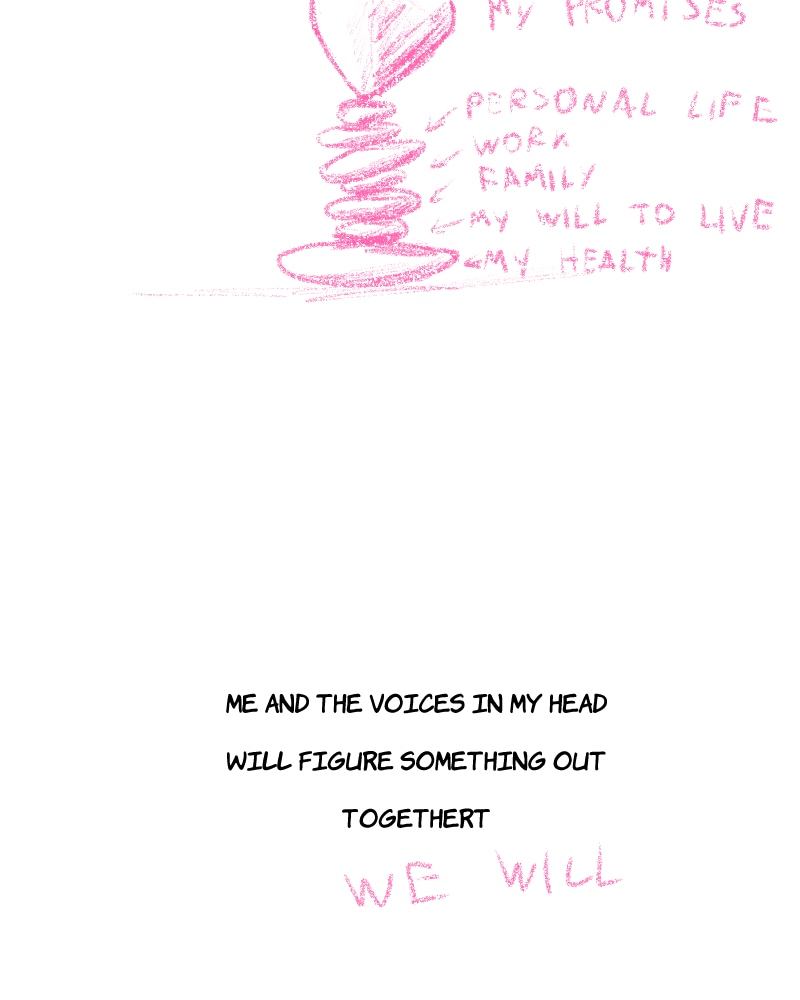 MY PROMISES
PERSONAL LIFE
WORK
FAMILY
MY WILL TO LIVE
MY HEALTH
ME AND THE VOICES IN MY HEAD
WILL FIGURE SOMETHING OUT
TOGETHERT
WE WILL